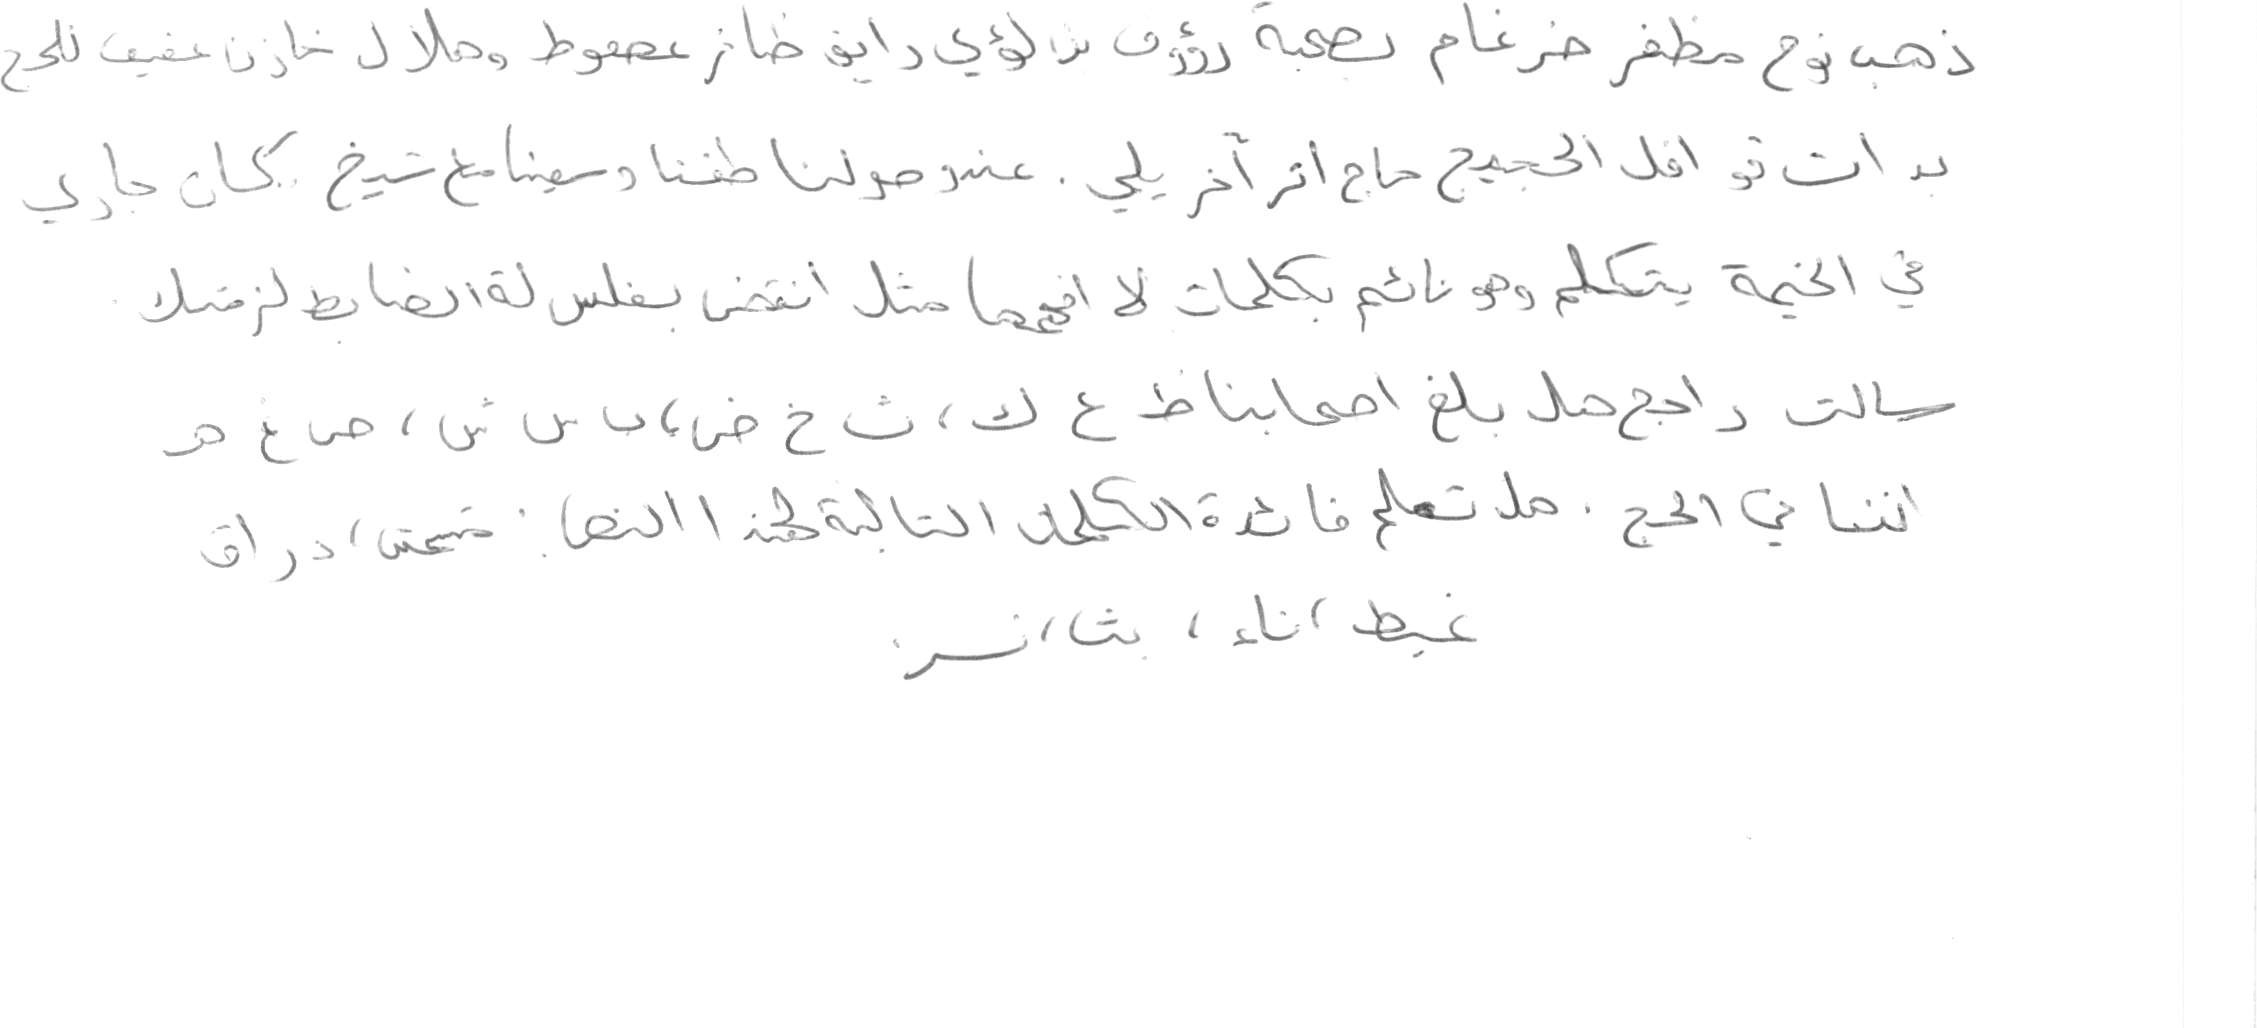 ذهب نوح مظفر ضرغام بصحبة رؤوف بن لؤي رايق ظافر عصفوط وهلال خازن عفيف للحج
بدات قوافل الحجيج حاج اثر آخر يلي. عند وصولنا طفنا وسعينا مع شيخ. كان جاري
في الخيمة يتكلم وهو نائم بكلمات لا افهمها مثل انقض بفلس لة الضابط لزقتك.
سالت راجح هل بلغ اصحابنا ظ ع ك، ث خ ض، ب س ش، ص غ هـ
اننا في الحج. هل تعلم فائدة الكلمات التالية لهذا النص:، دراق
غيط، اناء، بث،